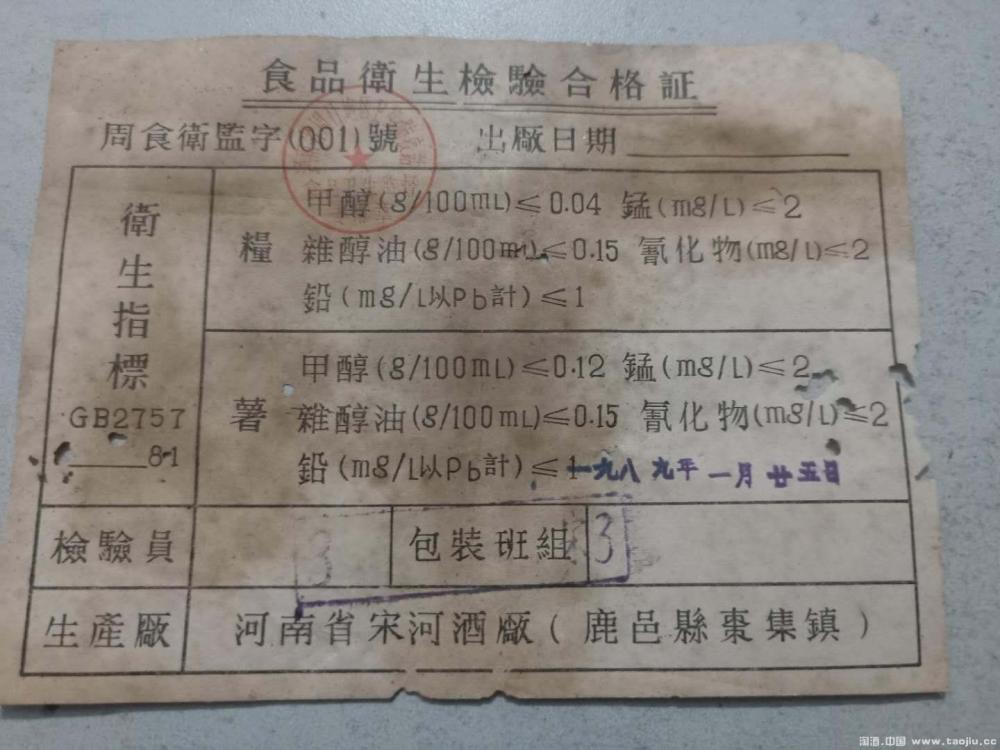 食品衛生檢驗合格証
周食衛監字(001)號 出廠日期
衛生指標
GB2757
——81
糧
甲醇(g/100mL)≤0.04 錳(mg/L)≤2
雜醇油(g/100mL)≤0.15 氰化物(mg/L)≤2
鉛(mg/L以Pb計)≤1
薯
甲醇(g/100mL)≤0.12 錳(mg/L)≤2
雜醇油(g/100mL)≤0.15 氰化物(mg/L)≤2
鉛(mg/L以Pb計)≤1
一九八九年一月廿五日
檢驗員 3 包裝班組 3
生產廠 河南省宋河酒廠(鹿邑縣棗集鎮)
淘酒.中国 www.taojiu.cc